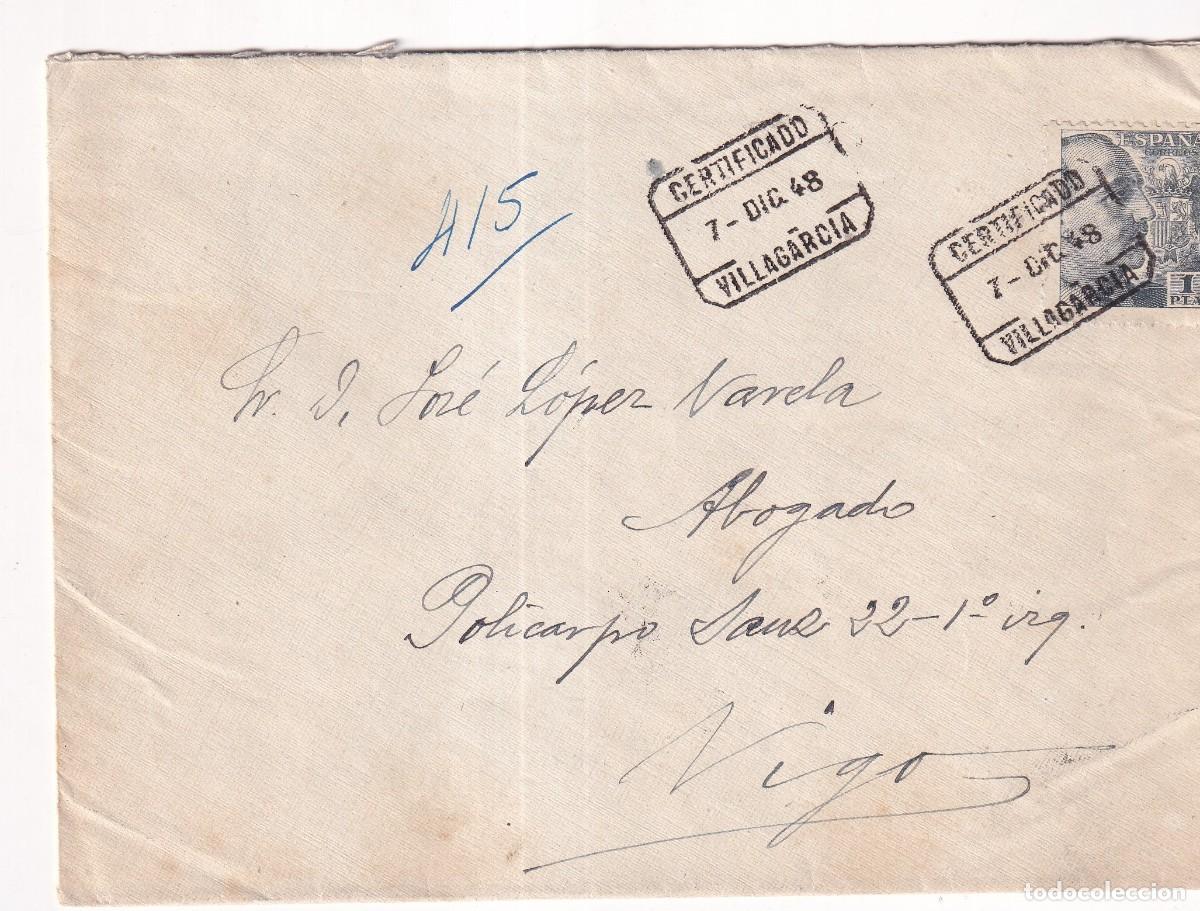 415
CERTIFICADO
7- DIC. 48
VILLAGARCIA
ESPAÑA
CORREOS
1
PTA
CERTIFICADO
7- DIC. 48
VILLAGARCIA
Sr. D. José López Varela
Abogado
Policarpo Sanz 22-1º izq.
Vigo
todocoleccion